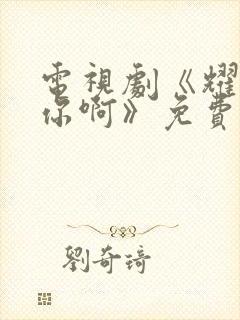 電視劇《耀
你啊》免費
劉奇琦